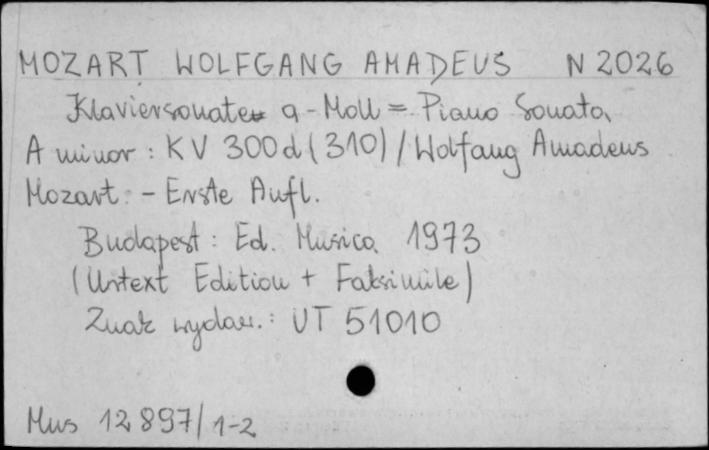 MOZART WOLFGANG AMADEUS N 2026
Klaviersonate a-Moll = Piano Sonata
A minor : KV 300d (310) / Wolfang Amadeus
Mozart. - Erste Aufl.
Budapest : Ed. Musica 1973
(Urtext Edition + Faksimile)
Znak wydaw.: UT 51010
Mus 12897/1-2